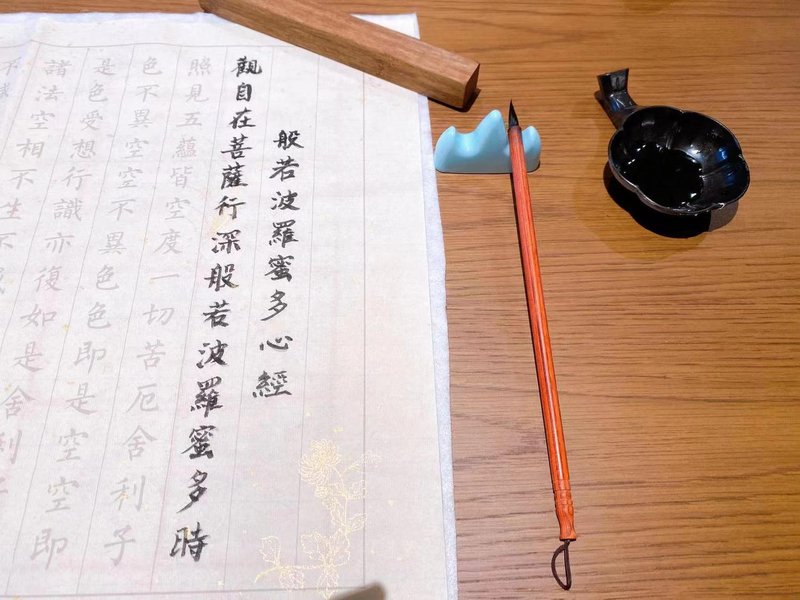 般若波羅蜜多心經
觀自在菩薩行深般若波羅蜜多時
照見五蘊皆空度一切苦厄舍利子
色不異空空不異色色即是空空即
是色受想行識亦復如是舍利子
諸法空相不生不